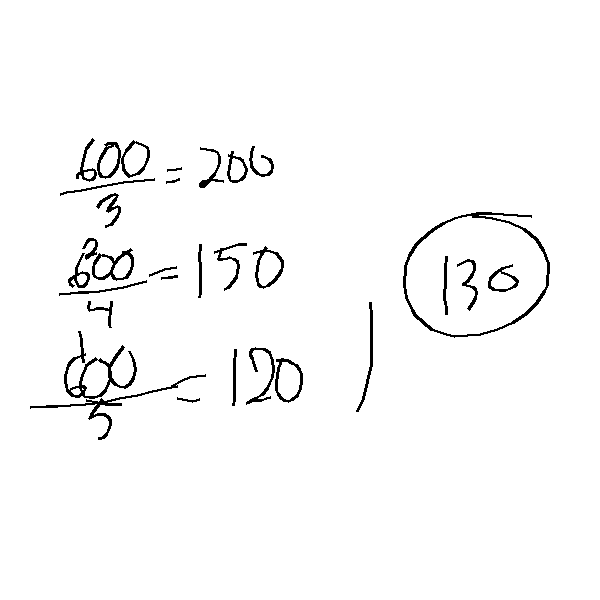 600/3 = 200
600/4 = 150
600/5 = 120
130